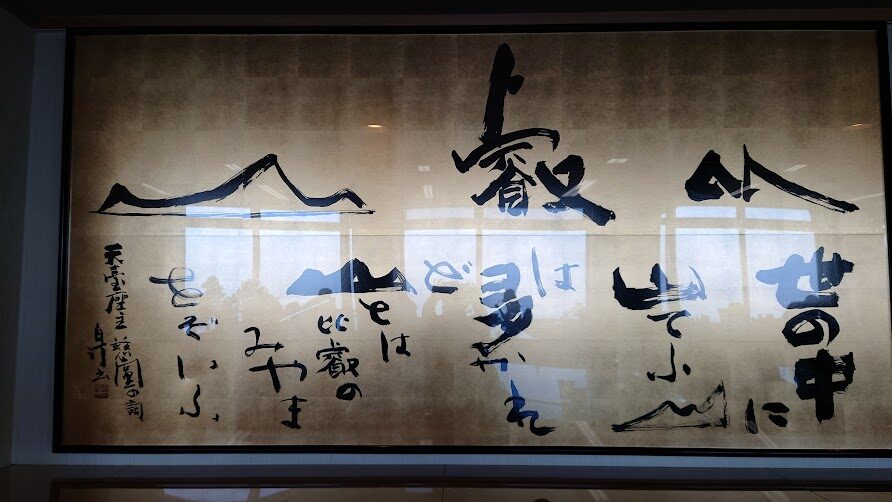 比叡山
世の中に
山てふ山
は
多かれ
ど
山とは
比叡の
みやま
をぞいふ
天臺座主
慈圓の詞